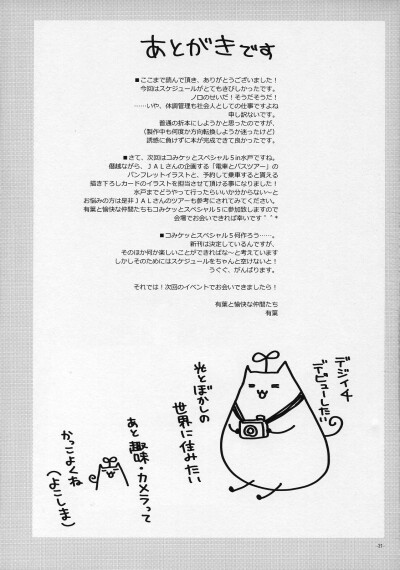 あとがきです
■ここまで読んで頂き、ありがとうございました！
今回はスケジュールがとてもきびしかったです。
ノロのせいだ！そうだそうだ！
……いや、体調管理も社会人としての仕事ですよね
申し訳ないです。
普通の折本にしようかと思ったのですが、
（製作中も何度か方向転換しようか迷ったけど）
誘惑に負けずに本が完成できて良かったです。
■さて、次回はコみケッとスペシャル５in水戸ですね。
僭越ながら、ＪＡＬさんの企画する「電車とバスツアー」の
パンフレットイラストと、予約して乗車すると貰える
描き下ろしカードのイラストを担当させて頂ける事になりました！
水戸までどうやって行ったらいいか分からない～と
お悩みの方は是非ＪＡＬさんのツアーも参考にされてみてください。
有葉と愉快な仲間たちもコみケッとスペシャル５に参加致しますので
会場でお会いできれば幸いです＾＾*
■コみケッとスペシャル５何作ろう……。
新刊は決定しているんですが、
そのほか何か楽しいことができればな～と考えています
しかしそのためにはスケジュールをちゃんと空けないと！
うぐぐ、がんばります。
それでは！次回のイベントでお会いできましたら！
有葉と愉快な仲間たち
有葉
デジイチ
デビューしたい
光とぼかしの
世界に住みたい
あと趣味・カメラって
かっこよくね
（よこしま）
-21-